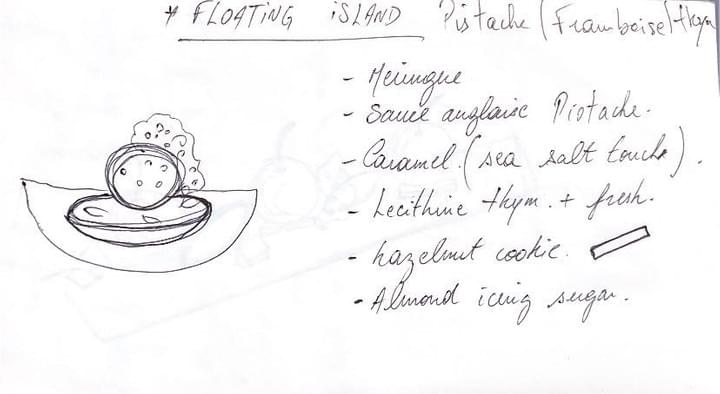 * FLOATING iSLAND Pistache (Framboise) thym
- Meringue
- Sauce anglaise Pistache.
- Caramel. (sea salt touch).
- Lecithine thym. + fresh.
- hazelnut cookie.
- Almond icing sugar.